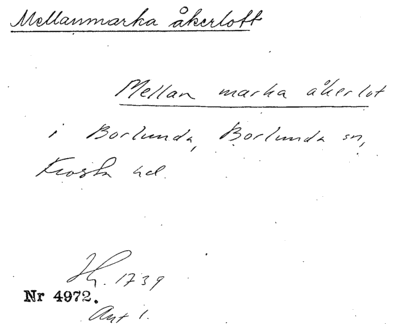 Mellanmarka åkerlott
Mellan marka åkerlot
i Borlunda, Borlunda sn,
Frosta hd.
Jb. 1739
Nr 4972.
Avt 1.